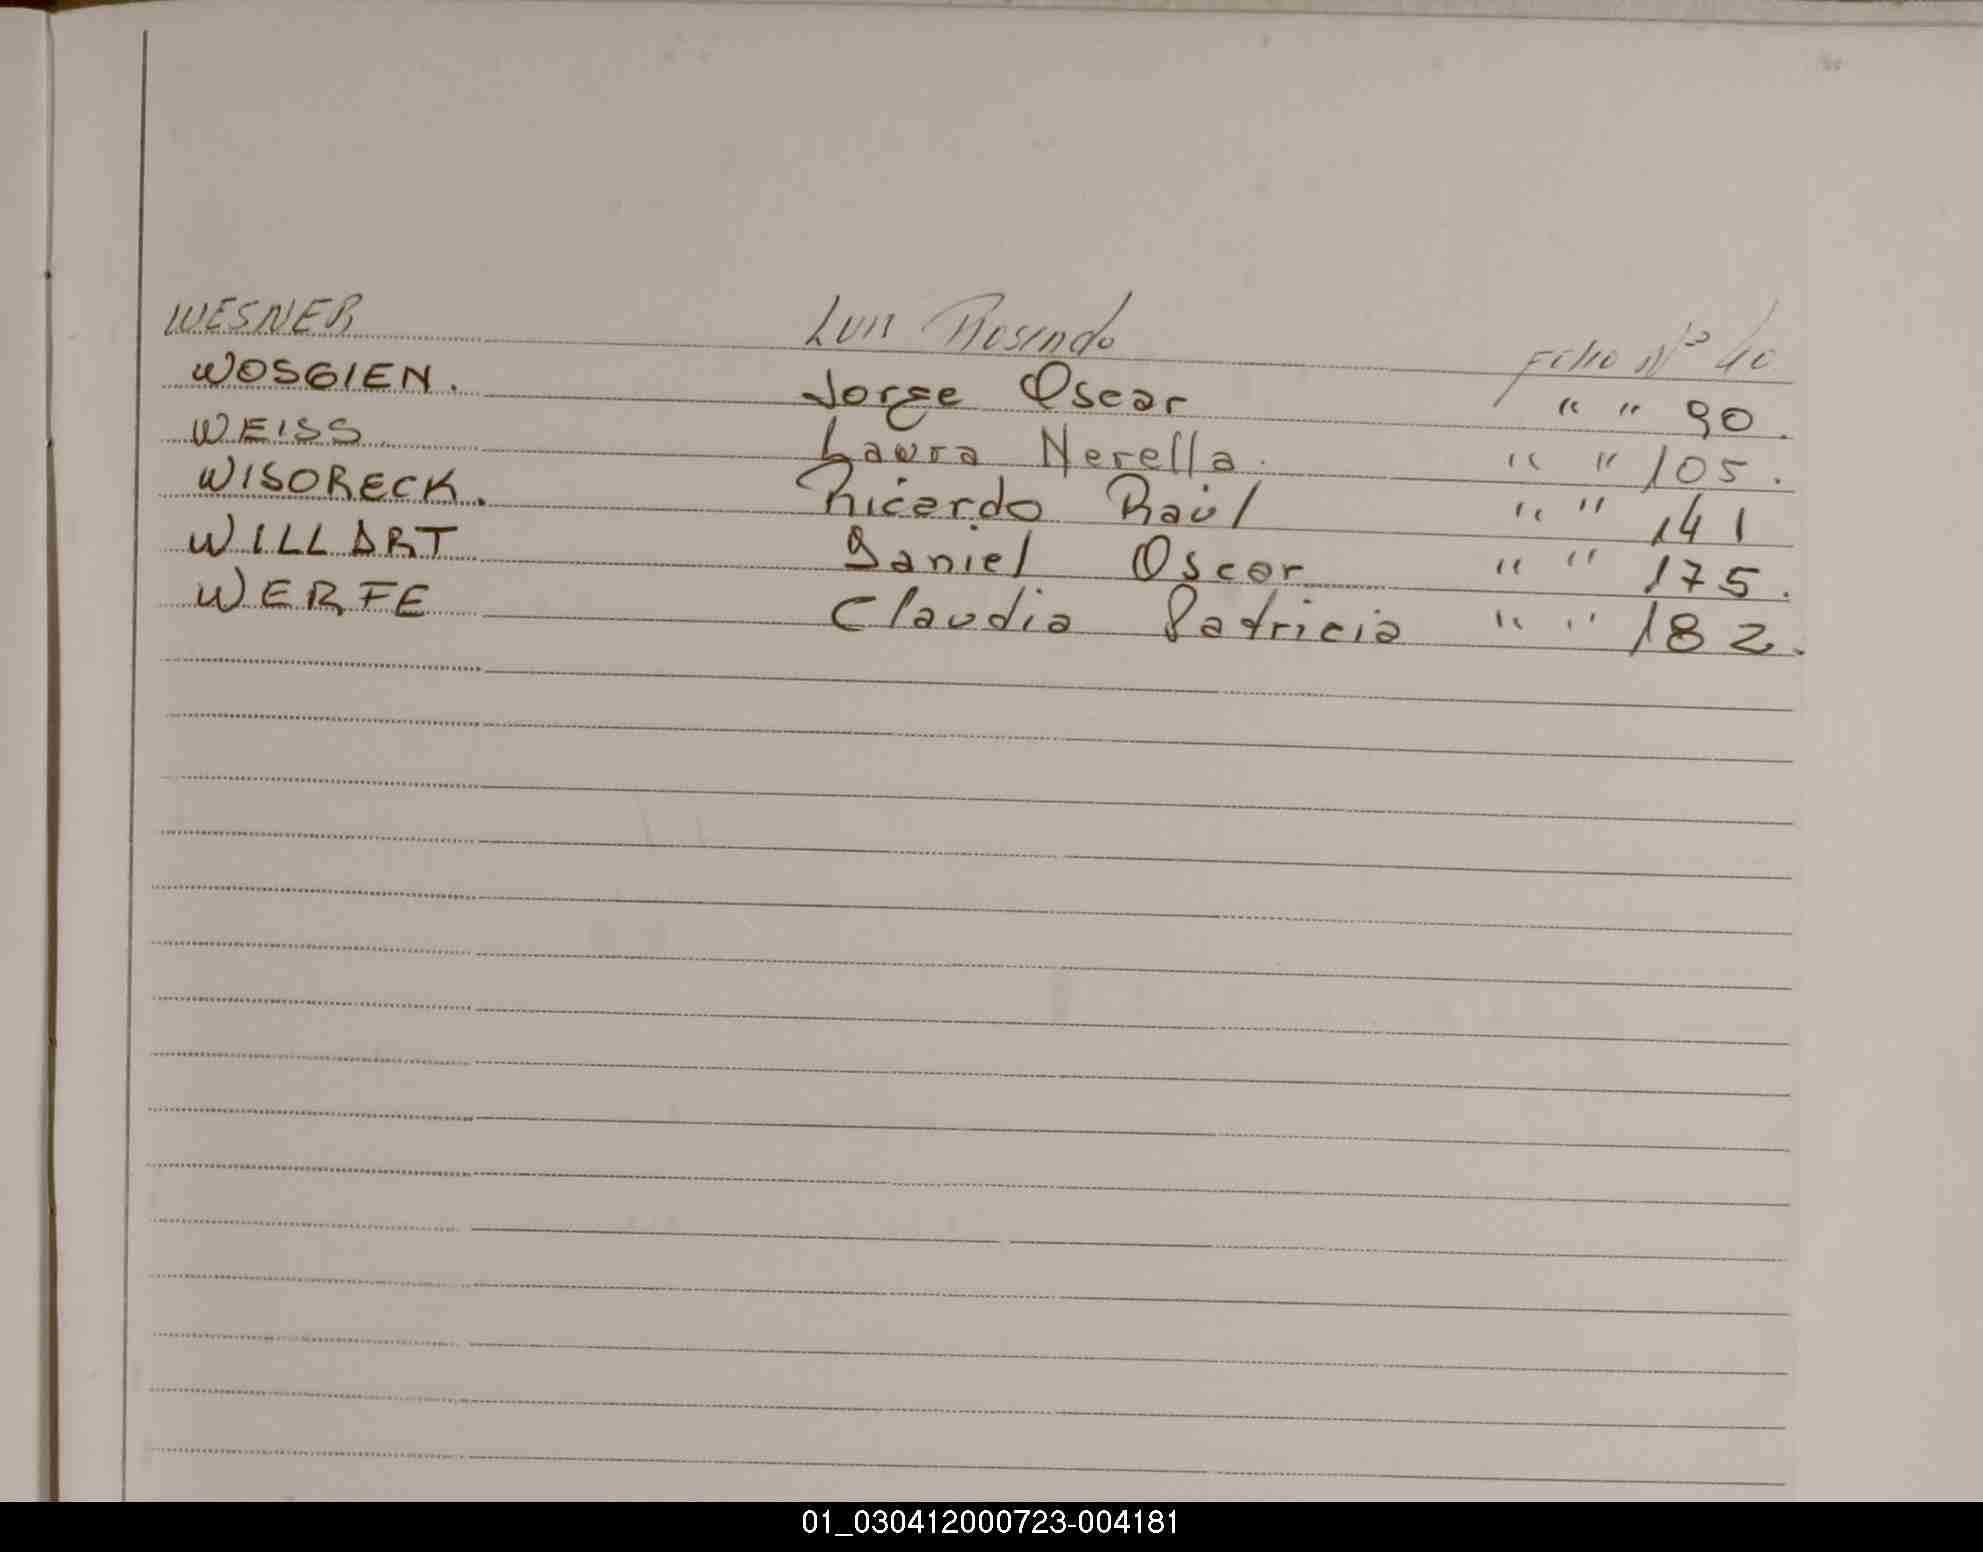 WESNER Luis Rosindo Folio Nº 40
WOSGIEN. Jorge Oscar " " 90.
WEISS Laura Nerella. " " 105.
WISORECK. Ricardo Raúl " " 141
WILLART Daniel Oscar " " 175.
WERFE Claudia Patricia " " 182.
01_030412000723-004181